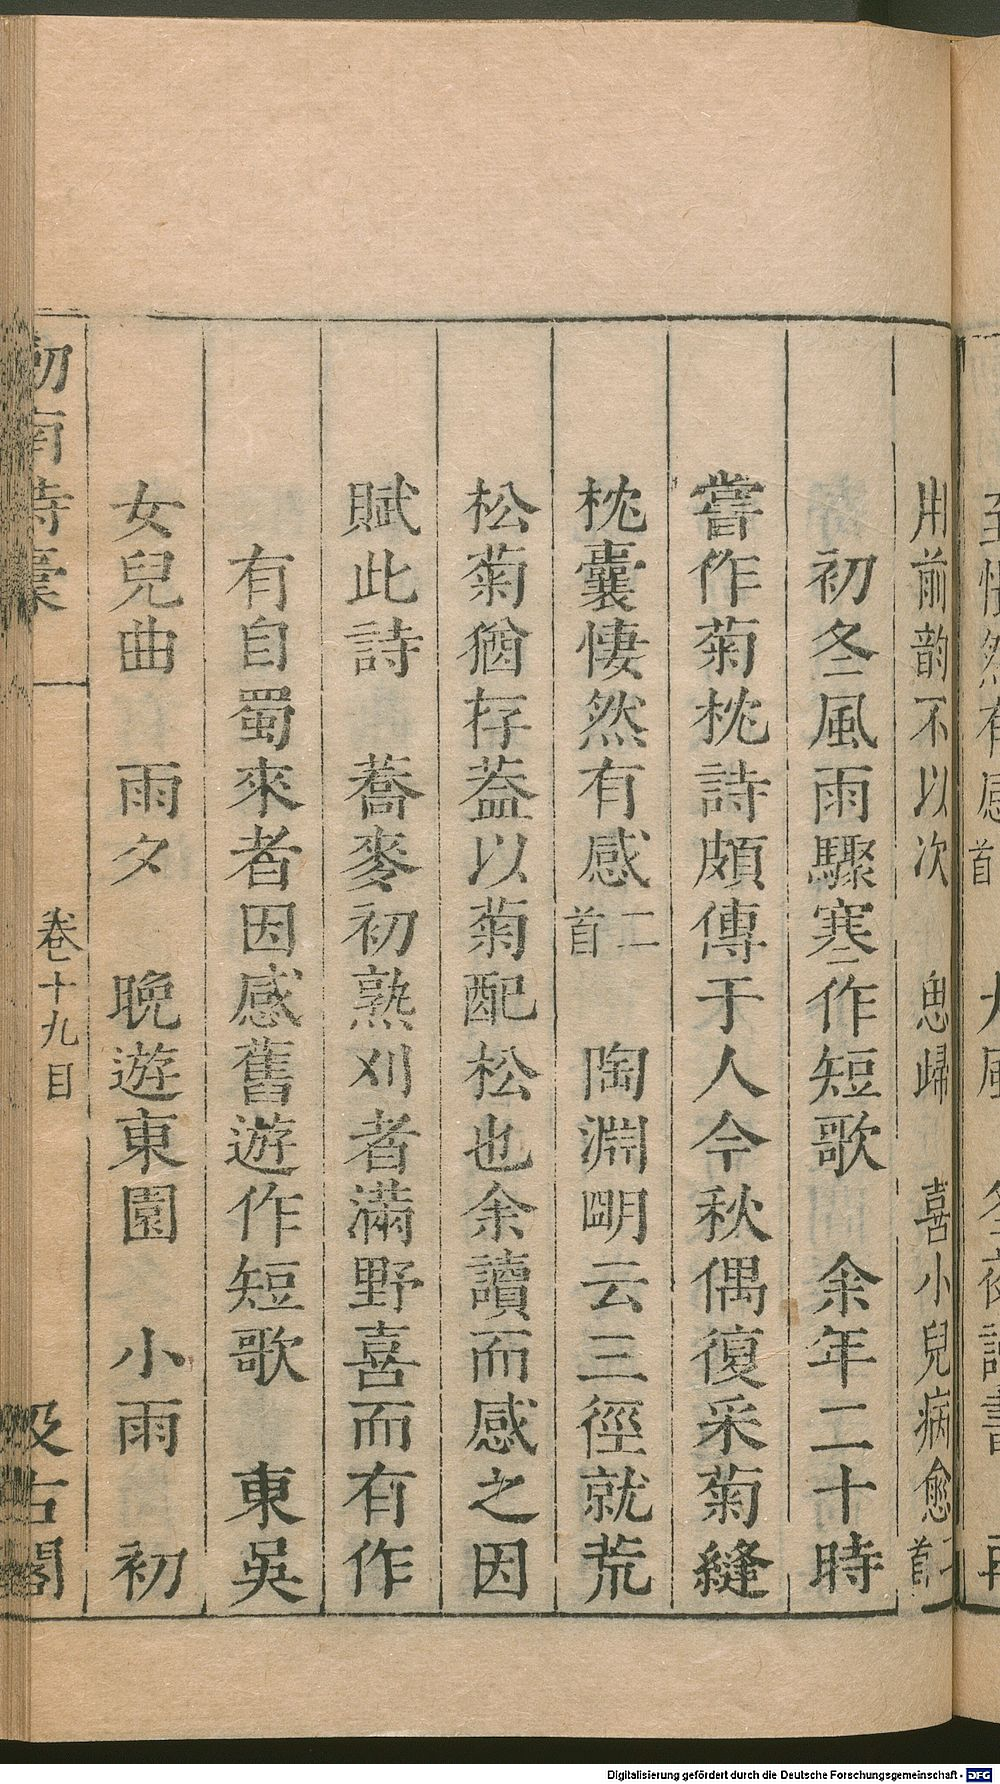 至悽然有感首　大風　冬夜讀書　再
用前韵不以次　思歸　喜小兒病愈二首
初冬風雨驟寒作短歌　余年二十時
嘗作菊枕詩頗傳于人今秋偶復采菊縫
枕囊悽然有感二首　陶淵明云三徑就荒
松菊猶存葢以菊配松也余讀而感之因
賦此詩　蕎麥初熟刈者滿野喜而有作
有自蜀來者因感舊遊作短歌　東吳
女兒曲　雨夕　晚遊東園　小雨　初
劒南詩稾　卷十九目　汲古閣
Digitalisierung gefördert durch die Deutsche Forschungsgemeinschaft - DFG